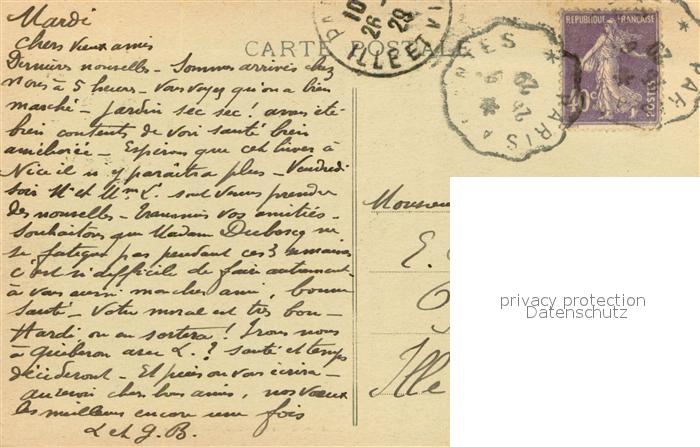 Mardi
chers vieux amis
CARTE POSTALE
Dernières nouvelles - Sommes arrivés chez
nous à 5 heures - Vous voyez qu'on a bien
marché - Jardin sec sec ! avons été
bien contents de voir santé bien
améliorée - Espérons que cet hiver à
Nice il n'y paraîtra plus - Vendredi
soir Mr et Mme L. sont venus prendre
des nouvelles - transmis vos amitiés -
Souhaitons que Madame ne
se fatigue pas pendant ces 3 semaines
c'est si difficile de faire autrement
à vous aussi mon cher ami, bonne
santé - Votre moral est très bon -
Hardi ou on sortira ! Irons nous
à Quiberon avec L. ? santé et temps
décideront - Et puis on vous écrira -
au revoir chers bons amis, nos vœux
les meilleurs encore une fois
L et G. B.
REPUBLIQUE FRANÇAISE
40c
POSTES
10
26 - 29
ILLE ET VI
PARIS A
29
PAR
Monsieur
E.
Ille
privacy protection
Datenschutz